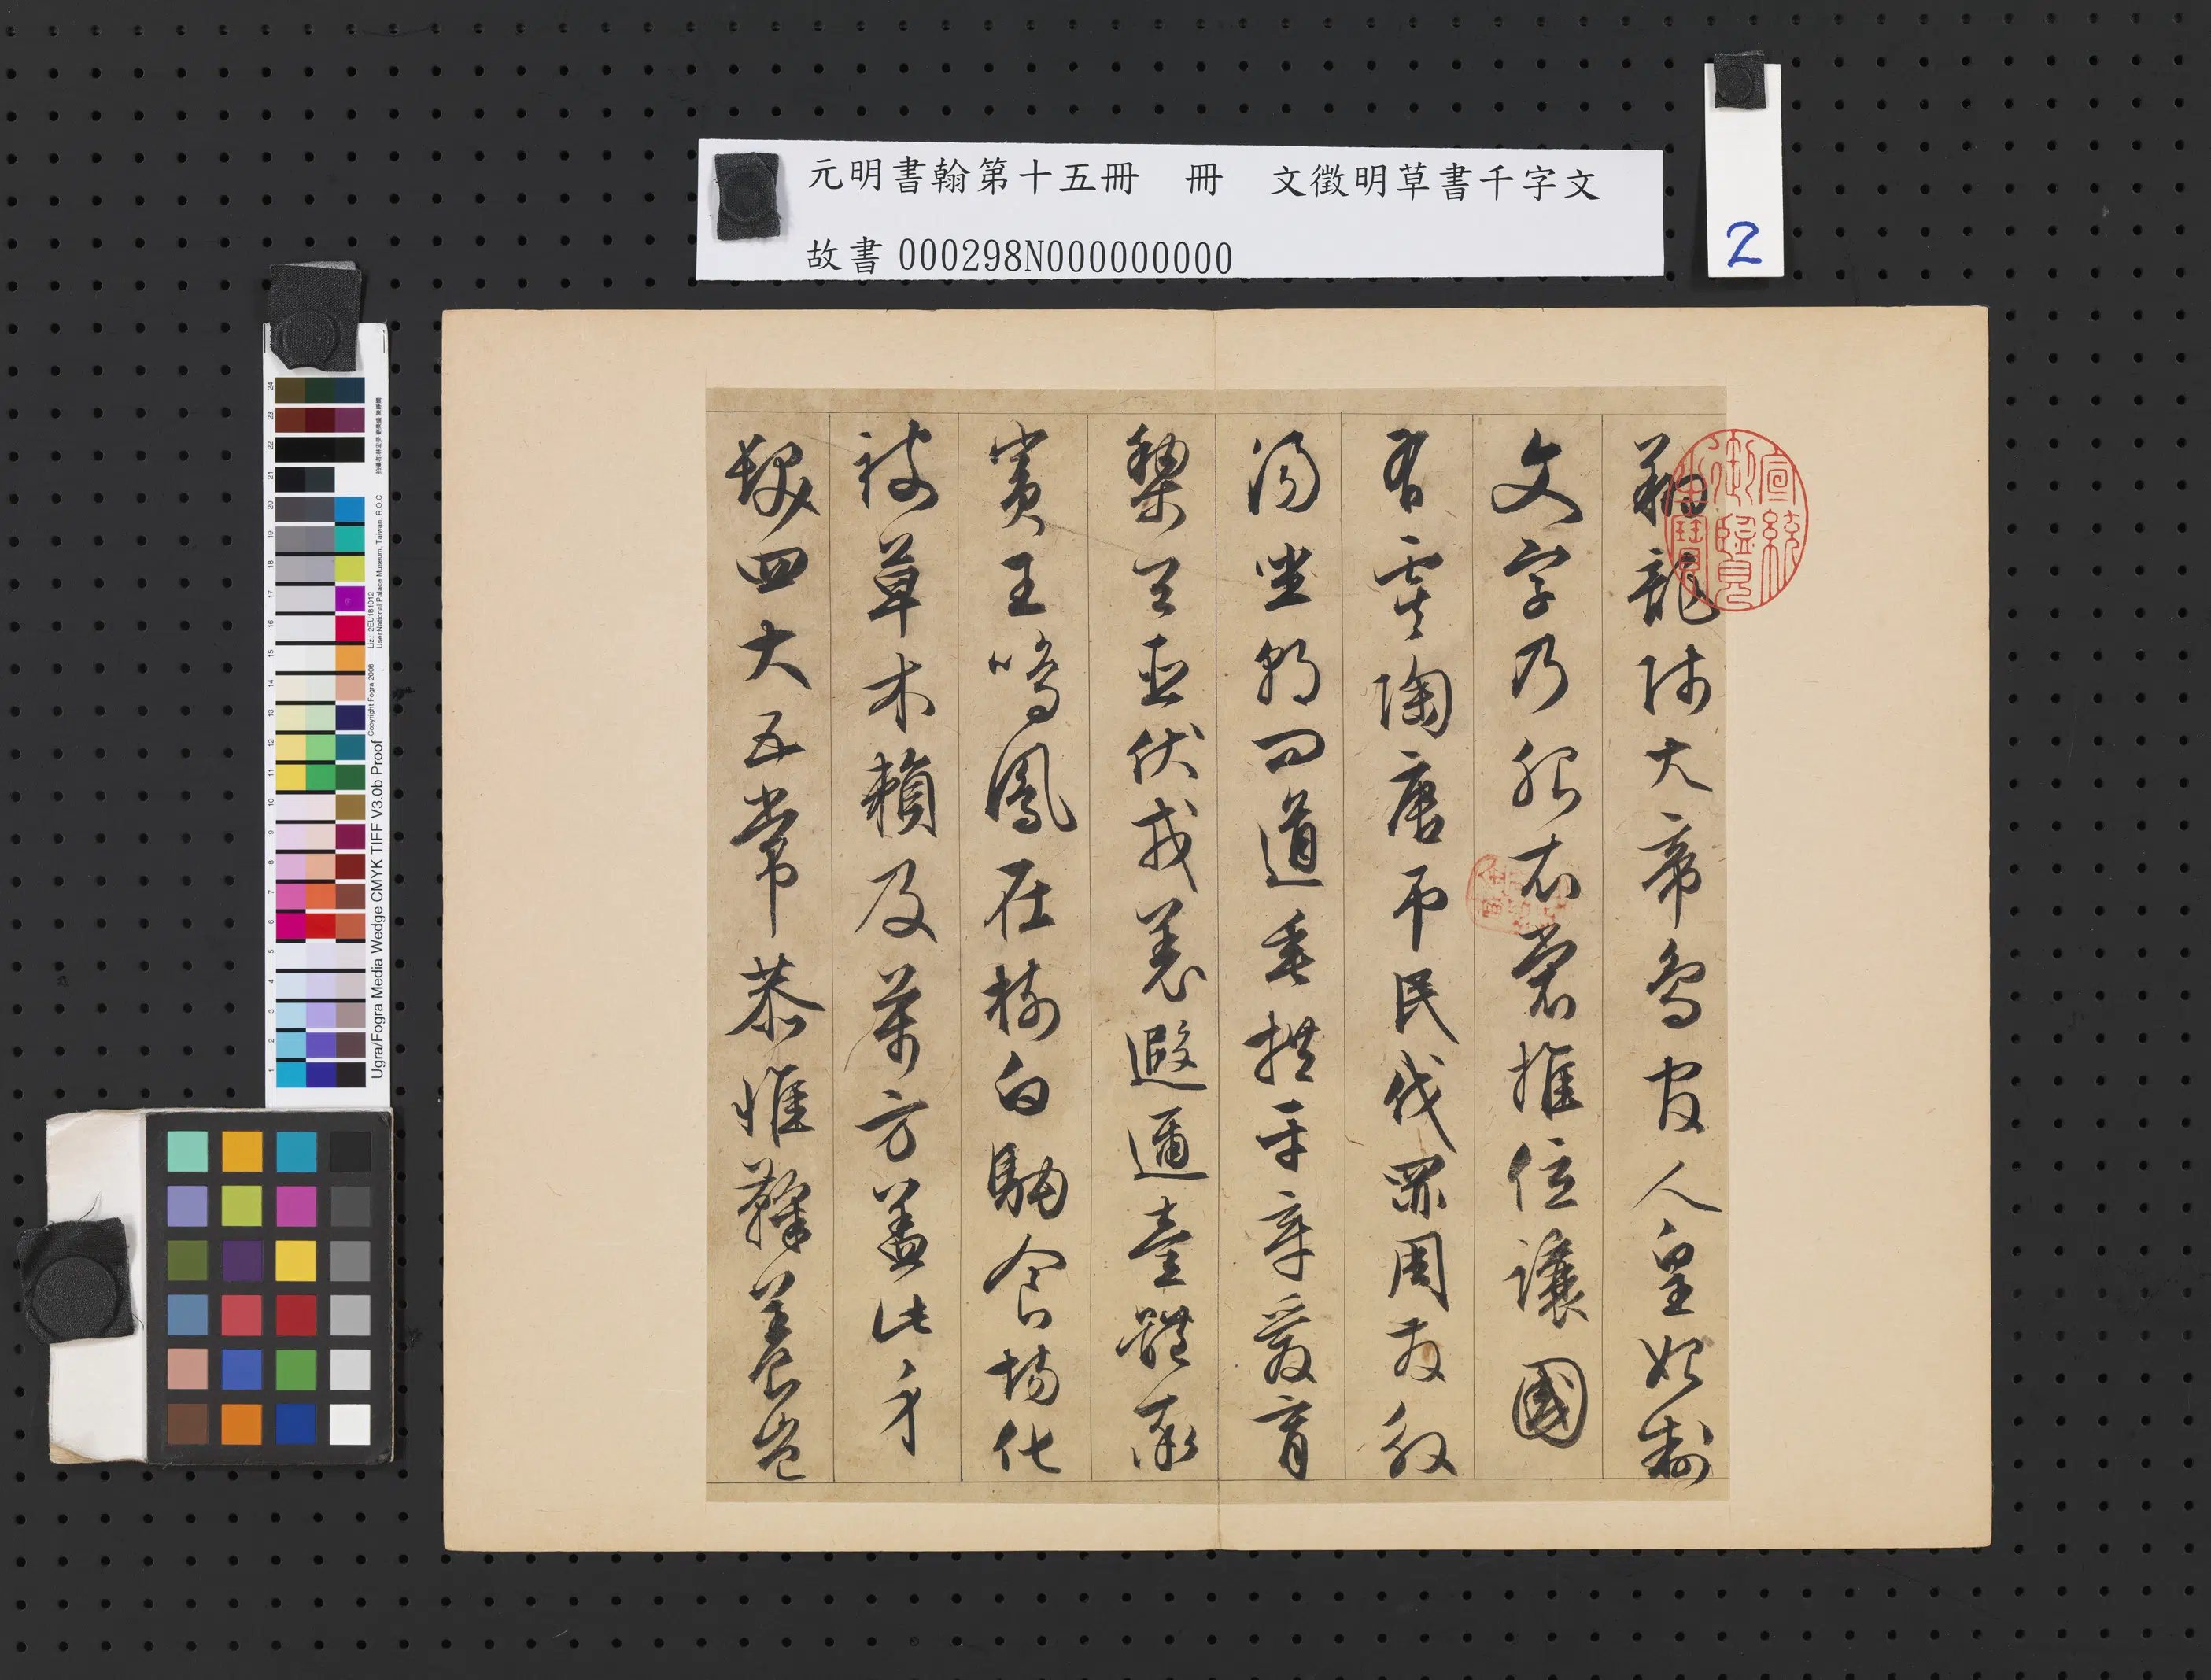 元明書翰第十五冊　冊　文徵明草書千字文
故書 000298N000000000
2
翔龍師火帝鳥官人皇始制
文字乃服衣裳推位讓國
有虞陶唐弔民伐罪周發殷
湯坐朝問道垂拱平章愛育
黎首臣伏戎羌遐邇壹體率
賓王鳴鳳在樹白駒食場化
被草木賴及萬方蓋此身
髮四大五常恭惟鞠養豈
宣統御覽之寶
Ugra/Fogra Media Wedge CMYK TIFF V3.0b Proof
Copyright Fogra 2008
Liz.: 2EU181012
User:National Palace Museum, Taiwan, R.O.C